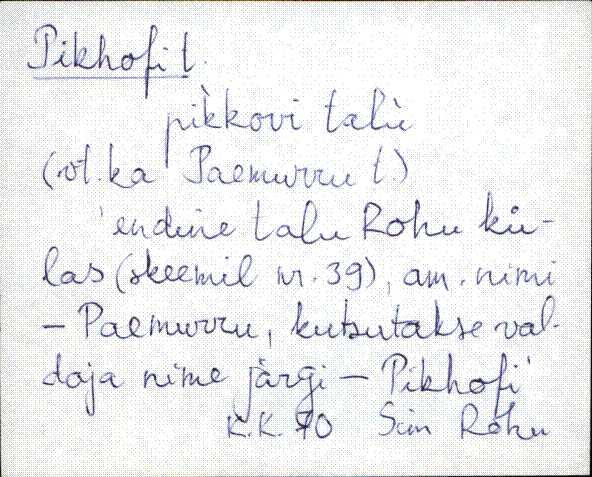 Pikhofi t.
pìkkovi talù
(vt. ka Paemurru t.)
'endine talu Rohu kü-
las (skeemil nr. 39), am. nimi
- Paemurru, kutsutakse val-
daja nime järgi - Pikhofi'
K.K. 70 Sim Rohu